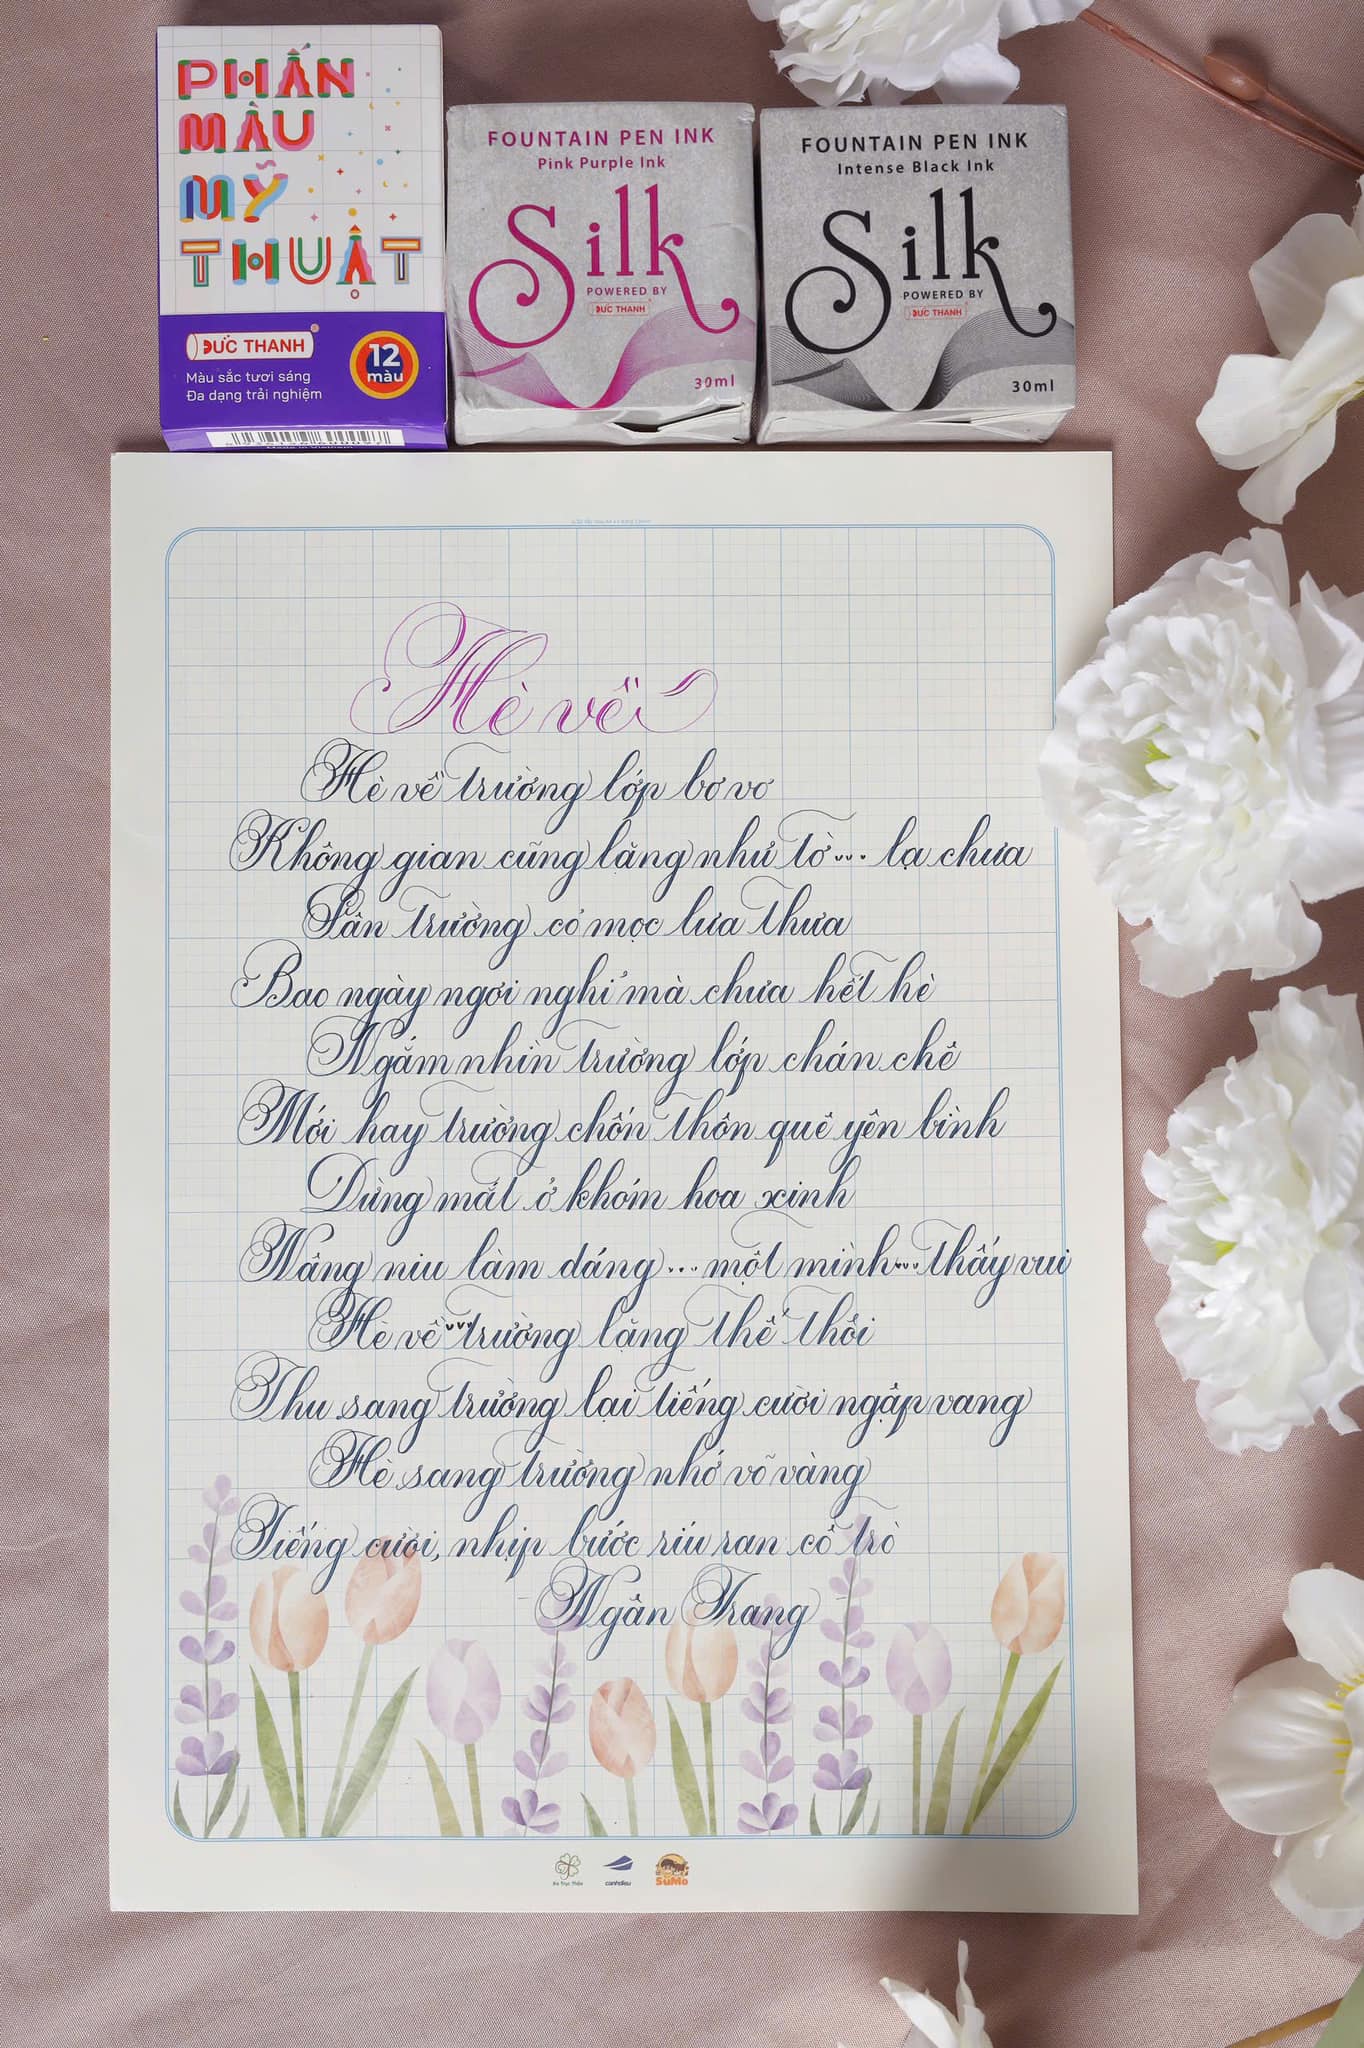 PHẤN
MÀU
MỸ
THUẬT
ĐỨC THANH
Màu sắc tươi sáng
Đa dạng trải nghiệm
12
màu
FOUNTAIN PEN INK
Pink Purple Ink
Silk
POWERED BY
ĐỨC THANH
30ml
FOUNTAIN PEN INK
Intense Black Ink
Silk
POWERED BY
ĐỨC THANH
30ml
Hè về
Hè về trường lớp bơ vơ
Không gian cũng lặng như tờ... lạ chưa
Sân trường cỏ mọc lưa thưa
Bao ngày ngơi nghỉ mà chưa hết hè
Ngắm nhìn trường lớp chán chê
Mới hay trường chốn thôn quê yên bình
Dừng mắt ở khóm hoa xinh
Nâng niu làm dáng... một mình... thấy vui
Hè về... trường lặng thế thôi
Thu sang trường lại tiếng cười ngập vang
Hè sang trường nhớ võ vàng
Tiếng cười, nhịp bước ríu ran cô trò
Ngân Trang
SuMo